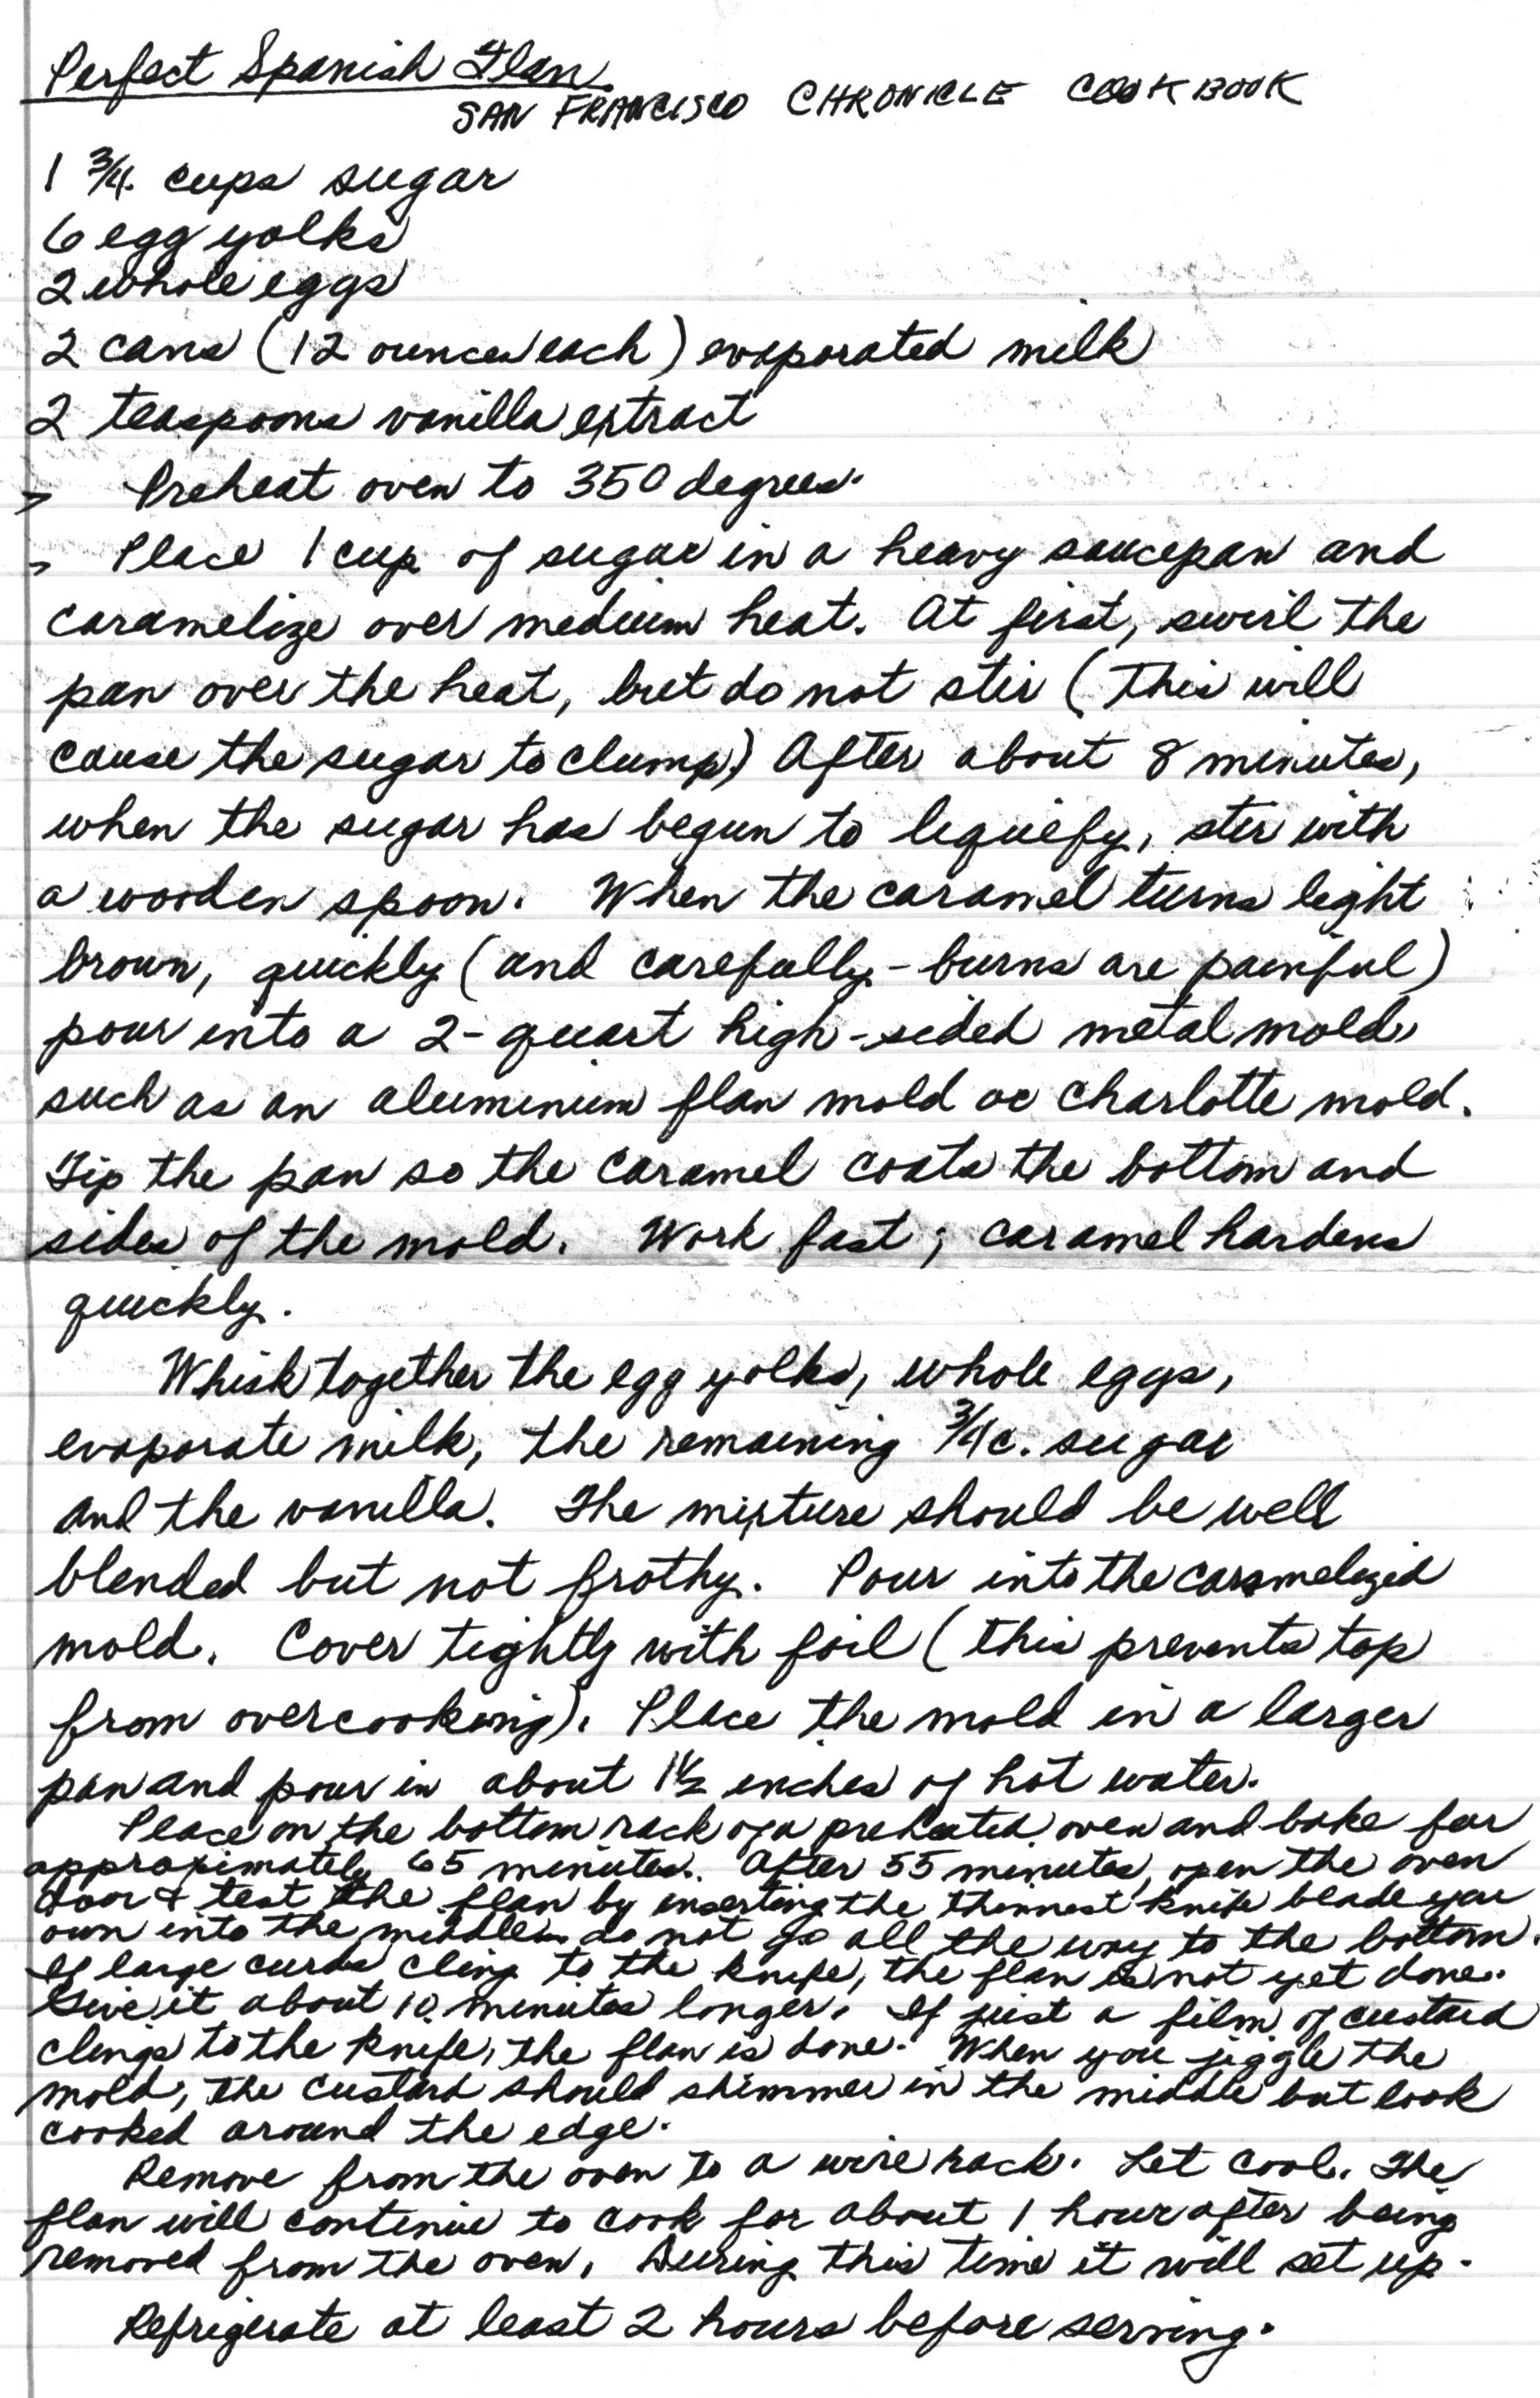 Perfect Spanish Flan
SAN FRANCISCO CHRONICLE COOKBOOK
1 3/4 cups sugar
6 egg yolks
2 whole eggs
2 cans (12 ounces each) evaporated milk
2 teaspoons vanilla extract
Preheat oven to 350 degrees.
Place 1 cup of sugar in a heavy saucepan and
caramelize over medium heat. At first, swirl the
pan over the heat, but do not stir (This will
cause the sugar to clump.) After about 8 minutes,
when the sugar has begun to liquefy, stir with
a wooden spoon. When the caramel turns light
brown, quickly (and carefully - burns are painful)
pour into a 2-quart high-sided metal mold,
such as an aluminum flan mold or charlotte mold.
Tip the pan so the caramel coats the bottom and
sides of the mold. Work fast; caramel hardens
quickly.
Whisk together the egg yolks, whole eggs,
evaporate milk, the remaining 3/4 c. sugar
and the vanilla. The mixture should be well
blended but not frothy. Pour into the caramelized
mold. Cover tightly with foil (this prevents top
from overcooking). Place the mold in a larger
pan and pour in about 1 1/2 inches of hot water.
Place on the bottom rack of a preheated oven and bake for
approximately 65 minutes. After 55 minutes, open the oven
door & test the flan by inserting the thinnest knife blade you
own into the middle - do not go all the way to the bottom.
If large curds cling to the knife, the flan is not yet done.
Give it about 10 minutes longer. If just a film of custard
clings to the knife, the flan is done. When you jiggle the
mold, the custard should shimmer in the middle but look
cooked around the edge.
Remove from the oven to a wire rack. Let cool. The
flan will continue to cook for about 1 hour after being
removed from the oven. During this time it will set up.
Refrigerate at least 2 hours before serving.